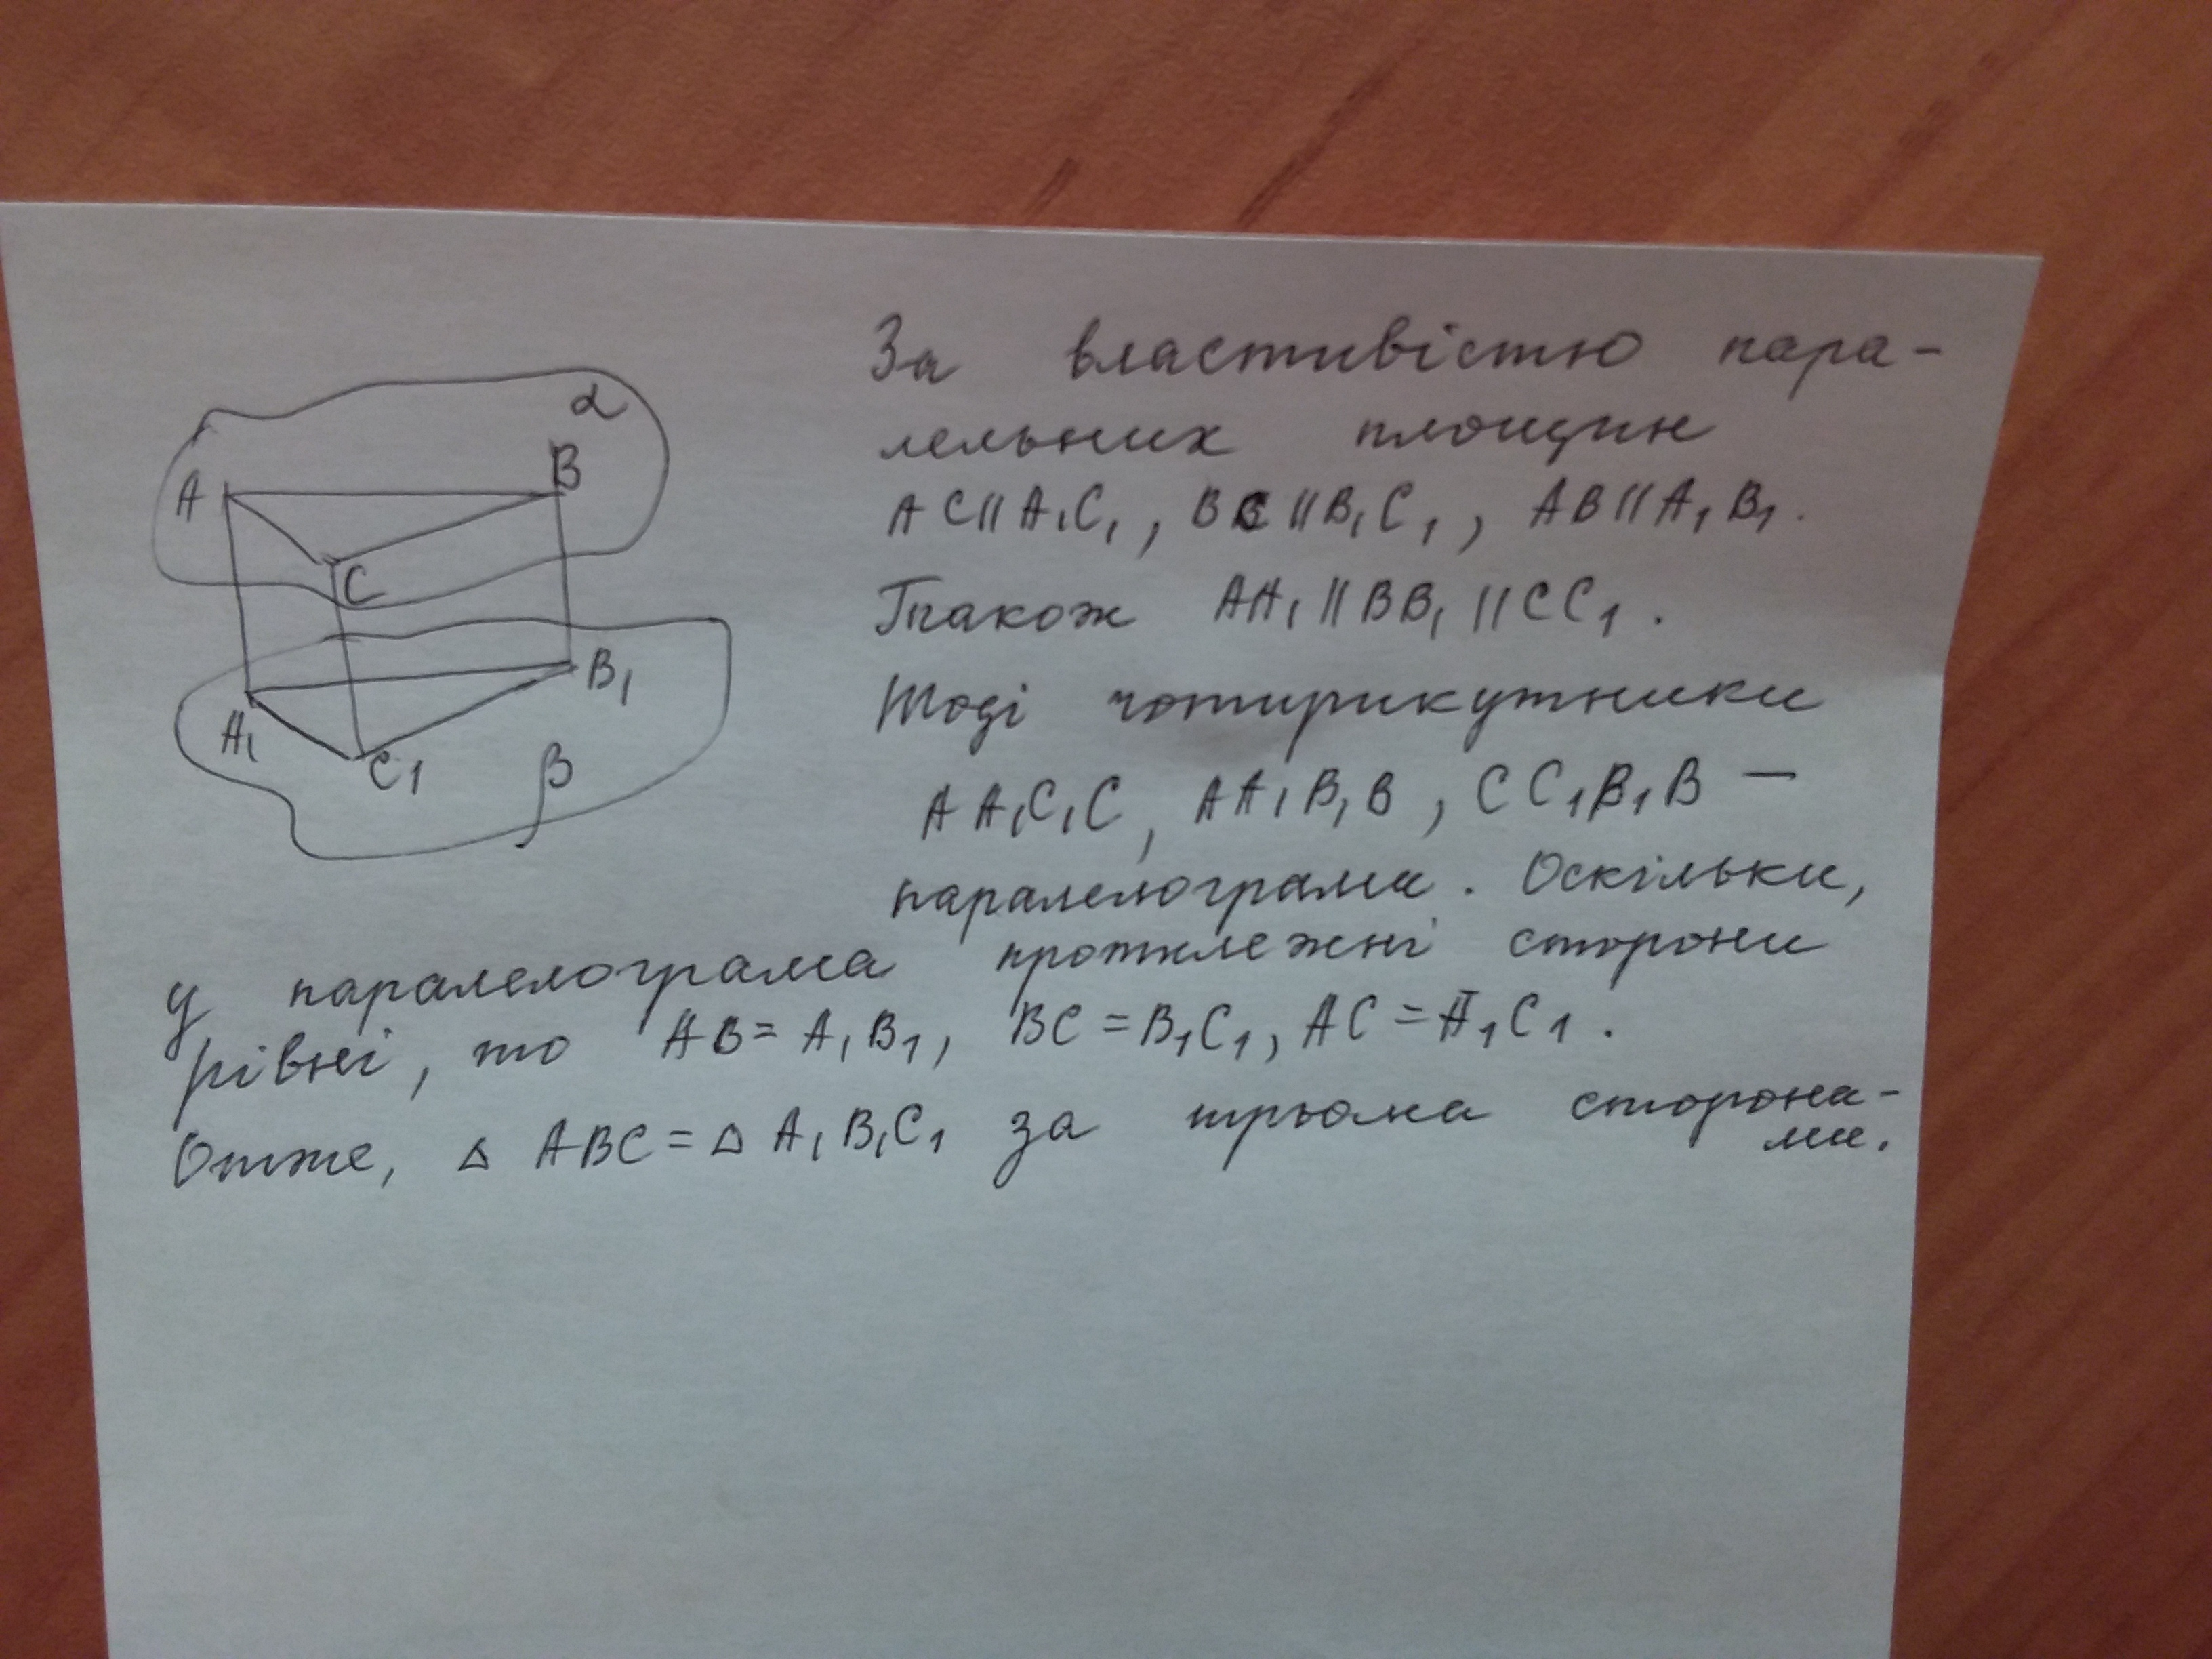 α
A
B
C
B₁
A₁
C₁
β
За властивістю пара-
лельних площин
AC∥A₁C₁, BC∥B₁C₁, AB∥A₁B₁.
Також AA₁∥BB₁∥CC₁.
Тоді чотирикутники
AA₁C₁C, AA₁B₁B, CC₁B₁B —
паралелограми. Оскільки,
у паралелограма протилежні сторони
рівні, то AB=A₁B₁, BC=B₁C₁, AC=A₁C₁.
Отже, △ABC=△A₁B₁C₁ за трьома сторона-
ми.